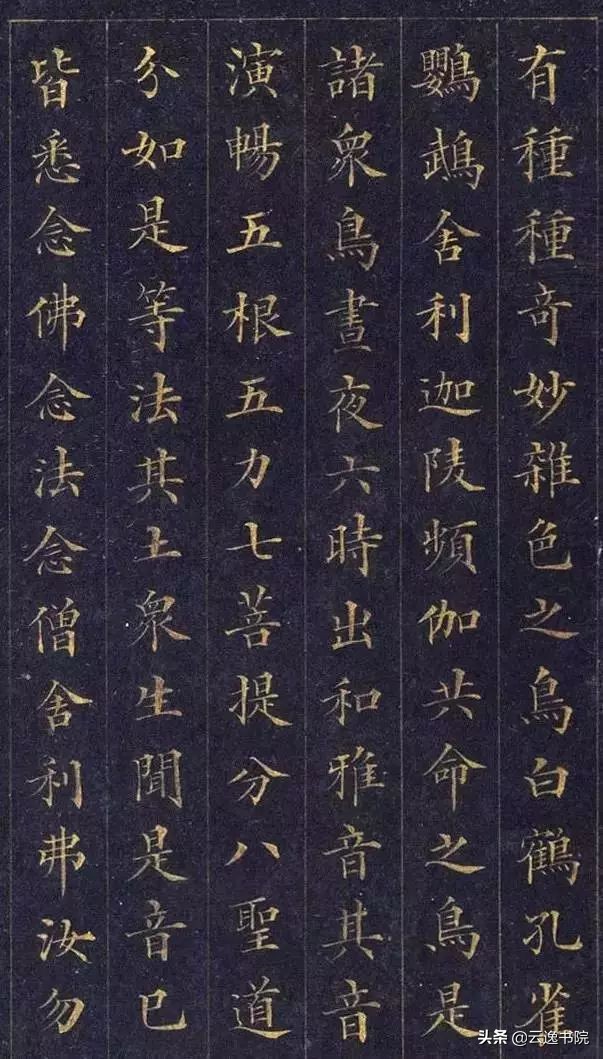 有種種奇妙雜色之鳥白鶴孔雀
鸚鵡舍利迦陵頻伽共命之鳥是
諸衆鳥晝夜六時出和雅音其音
演暢五根五力七菩提分八聖道
分如是等法其土衆生聞是音已
皆悉念佛念法念僧舍利弗汝勿
头条@云逸书院